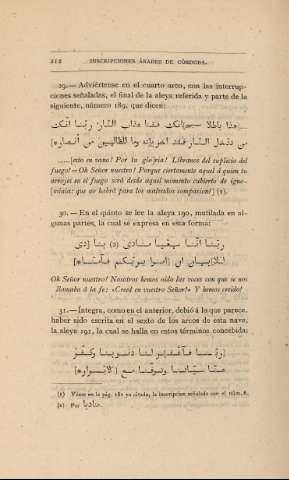 212 INSCRIPCIONES ÁRABES DE CÓRDOBA.
29.— Adviértense en el cuarto arco, con las interrup-
ciones señaladas, el final de la aleya referida y parte de la
siguiente, número 189, que dicen:
هذا باطلا سبحانك فقنا عذاب النار ربنا أنك
من تدخل النار فقد اخزيته وما للظالمين من انصار
.....]esto en vano! Por tu glo[ria! Líbranos del suplicio del
fuego!—Oh Señor nuestro! Porque ciertamente aquel á quien tu
arrojes en el fuego será desde aquel momento cubierto de igno-
[minia: que no habrá para los malvados compasion!] (1).
30.—En el quinto se lee la aleya 190, mutilada en al-
gunas partes, la cual se expresa en esta forma:
ربنا اننا سمعنا منادى (2) ينا [دى
للايمان ان [امنوا بربكم فآمنا]
Oh Señor nuestro! Nosotros hemos oido las voces con que se nos
llamaba á la fe: «Creed en vuestro Señor!» Y hemos creido!
31.—Íntegra, como en el anterior, debió á lo que parece,
haber sido escrita en el sexto de los arcos de esta nave,
la aleya 191, la cual se halla en estos términos concebida:
[ربنا فآغفر لنا ذنوبنا وكفر
عنا سياتنا وتوفنا مع [الابرار]
(1) Véase en la pág. 181 ya citada, la inscripcion señalada con el núm. 8.
(2) Por مناديا